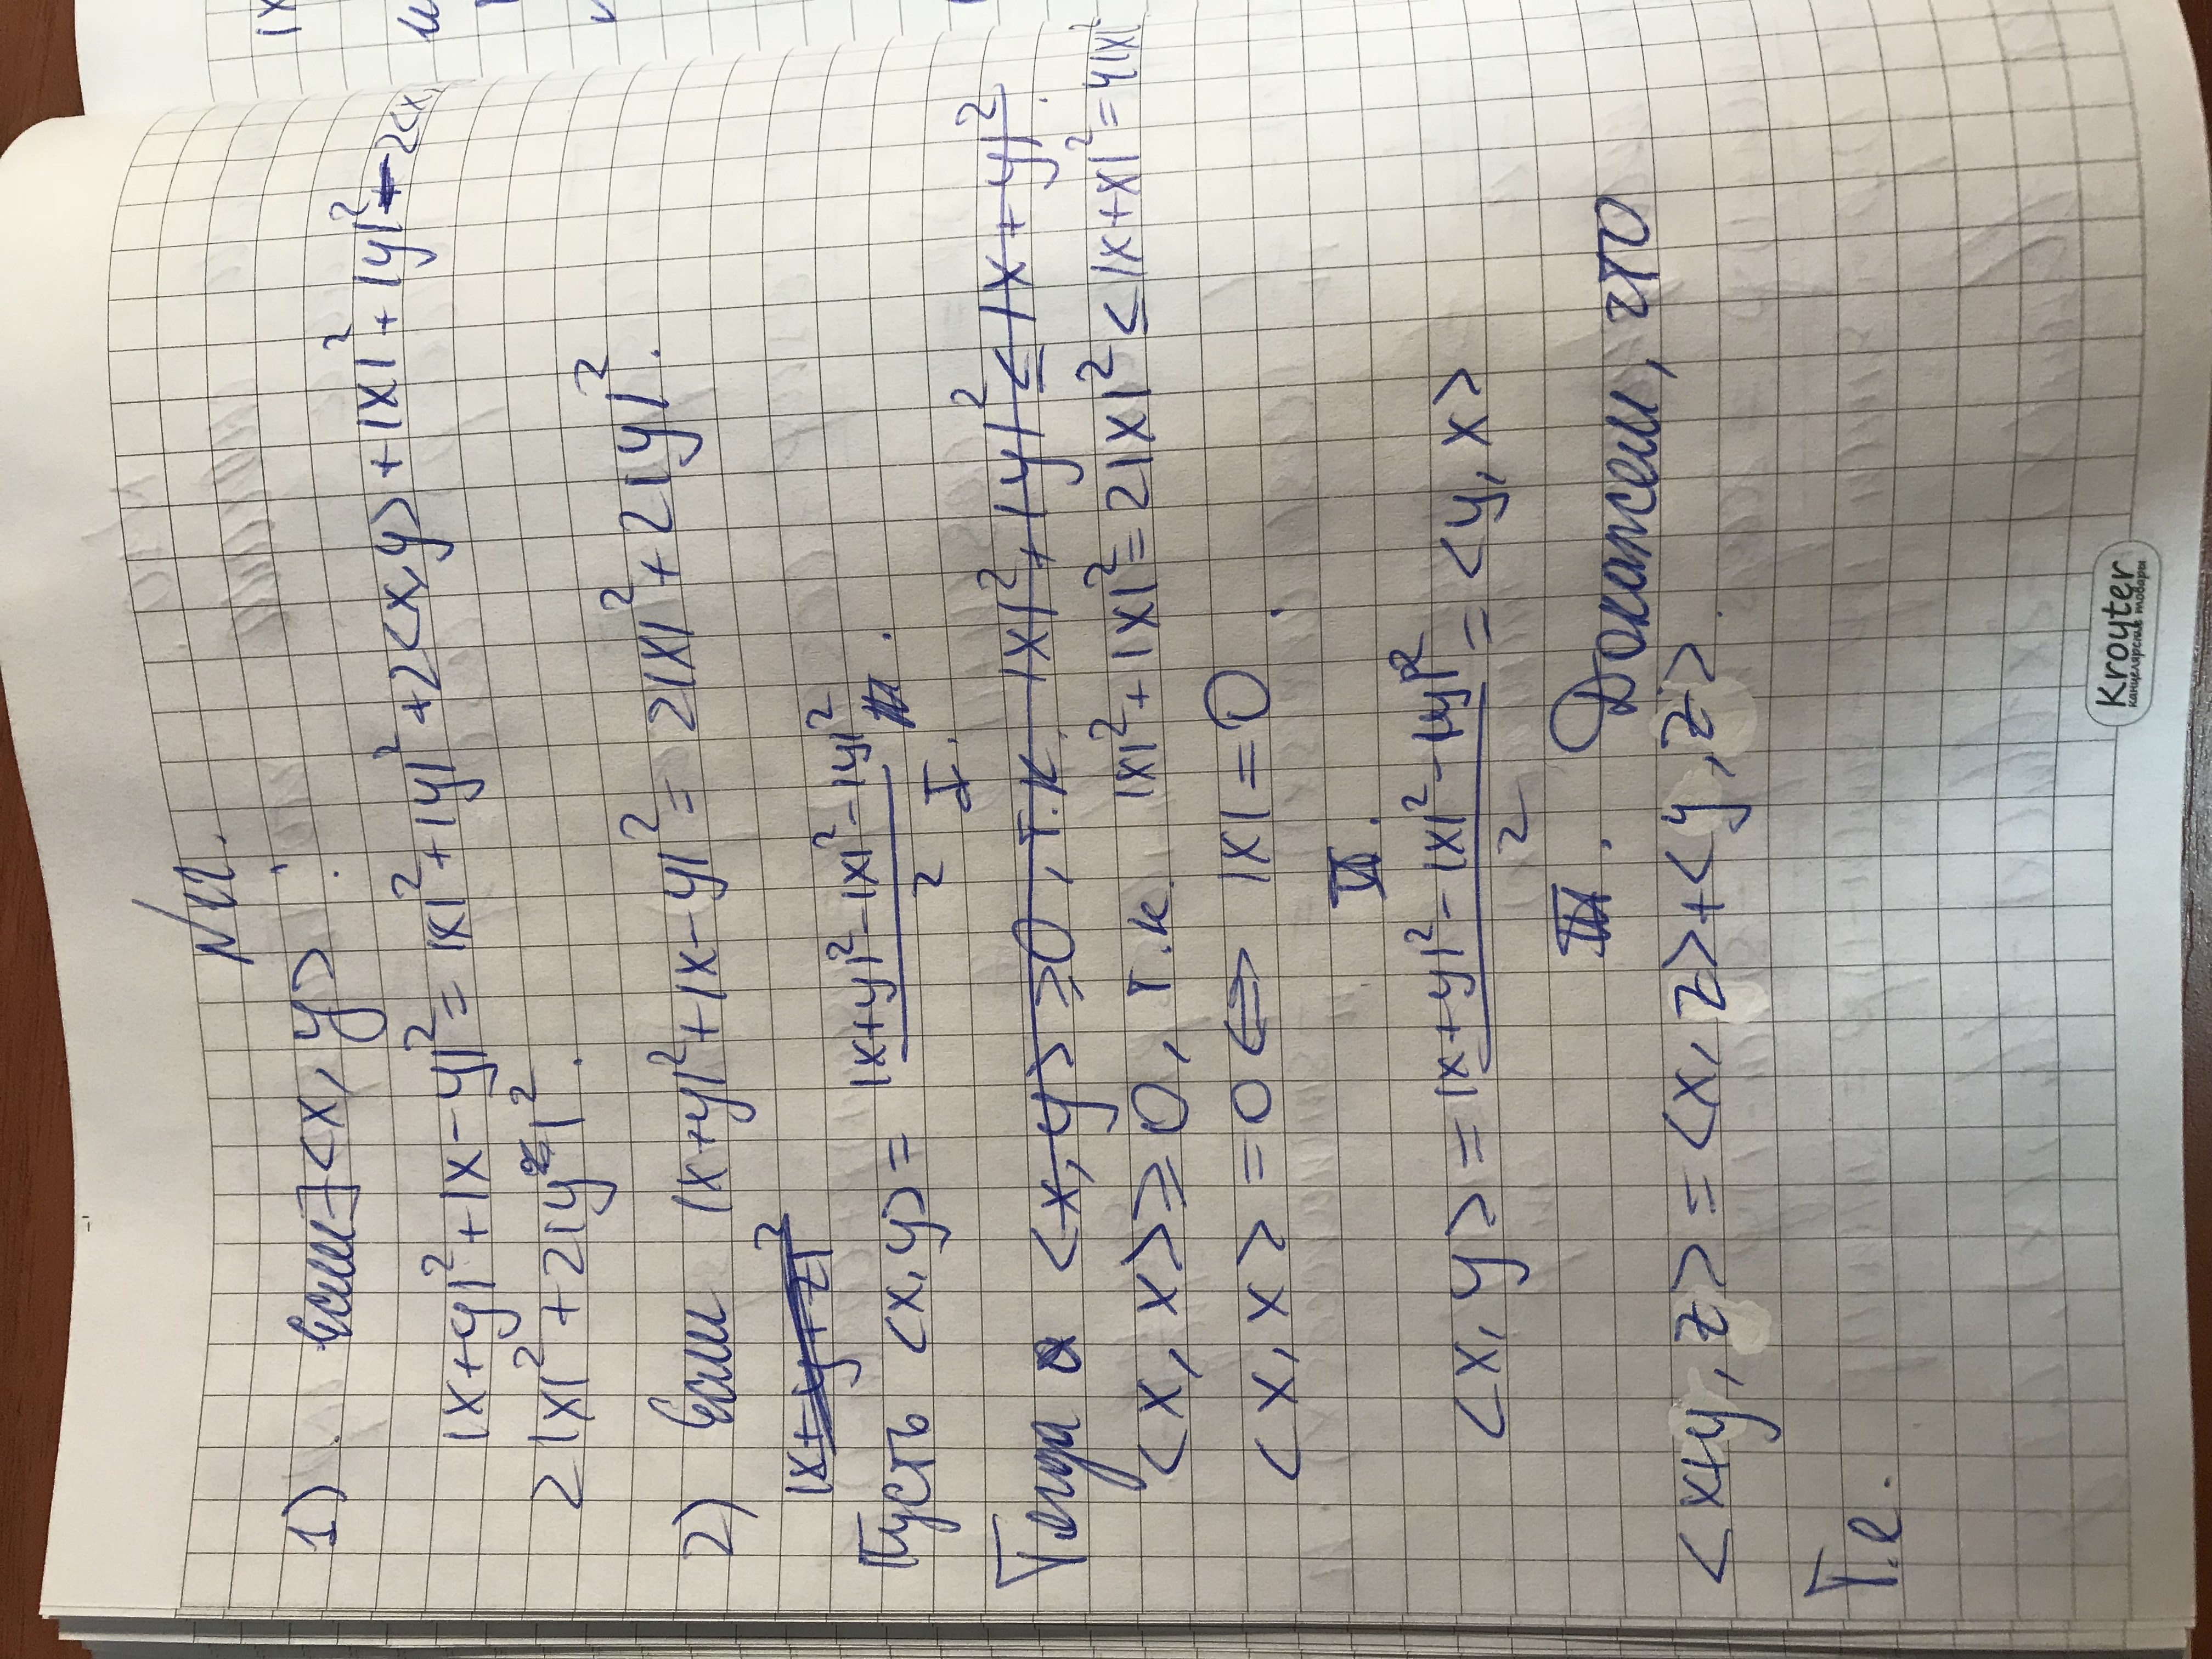 №11.
1). Если ∃<x, y> :
|x+y|²+|x-y|²= |x|²+|y|²+2<x,y>+|x|²+|y|²-2<x,
2|x|²+2|y|².
2) Если |x+y|²+|x-y|²= 2|x|²+2|y|².
|x+y+z|²
Пусть <x,y>= (|x+y|²-|x|²-|y|²)/2 .
I.
Тогда <x, y> ≥0, т.к. |x|²+|y|²≤|x+y|².
<x, x>≥0, т.к. |x|²+|x|²=2|x|²≤|x+x|²=4|x|²
<x, x> =0⇔ |x|=0.
II.
<x, y>= (|x+y|²-|x|²-|y|²)/2 = <y, x>
III. Докажем, что
<x+y, z>=<x, z>+<y, z>.
Т.е.
Kroyter
канцелярские товары